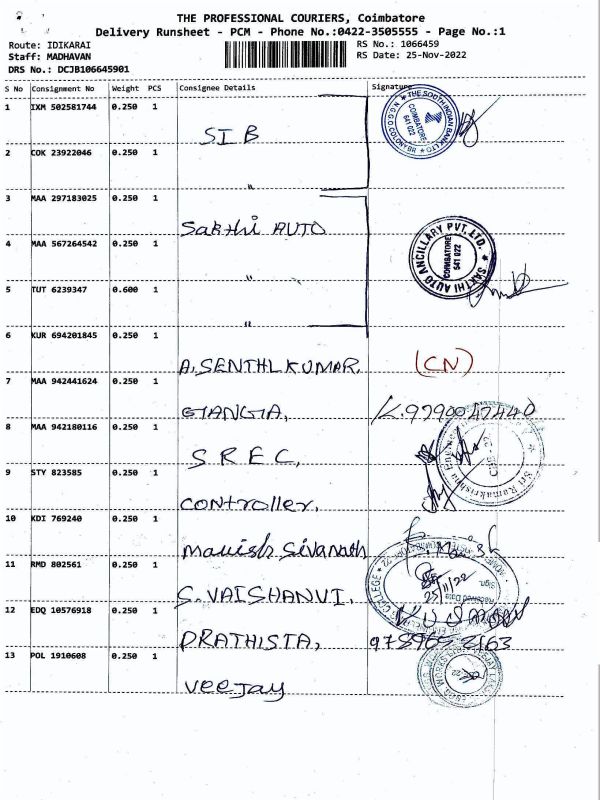 THE PROFESSIONAL COURIERS, Coimbatore
Delivery Runsheet - PCM - Phone No.:0422-3505555 - Page No.:1
Route: IDIKARAI RS No.: 1066459
Staff: MADHAVAN RS Date: 25-Nov-2022
DRS No.: DCJB106645901
S No Consignment No Weight PCS Consignee Details Signature
1 IXM 502581744 0.250 1
SIB
THE SOUTH INDIAN BANK LTD COIMBATORE 641 022
2 COK 23922046 0.250 1
"
3 MAA 297183025 0.250 1
Sakthi AUTO
4 MAA 567264542 0.250 1
"
SAKTHI AUTO ANCILLARY PVT. LTD. COIMBATORE 541 022
5 TUT 6239347 0.600 1
"
6 KUR 694201845 0.250 1
A. SENTHLKUMAR. (CN)
7 MAA 942441624 0.250 1
GIANGIA,
8 MAA 942180116 0.250 1
S R E C,
Sri Ramakrishna
9 STY 823585 0.250 1
Controller.
10 KDI 769240 0.250 1
Manish Sivanath
11 RMD 802561 0.250 1
S. VAISHANVI.
COLLEGE
25/11/22
Received Date
Sign.
12 EDQ 10576918 0.250 1
PRATHISTA,
13 POL 1910608 0.250 1
Veejay